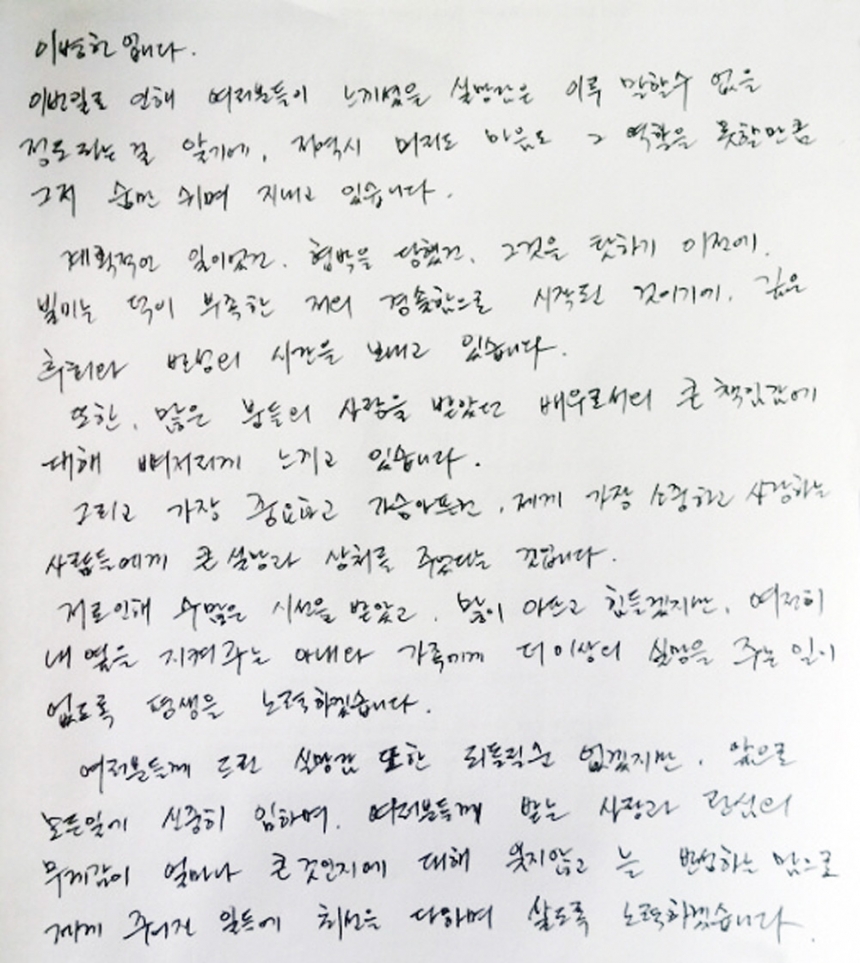 이병헌 입니다.
이번일로 인해 여러분들이 느끼셨을 실망감은 이루 말할수 없을
정도라는걸 알기에, 저역시 머리도 마음도 그 역할을 못할만큼
그저 숨만 쉬며 지내고 있습니다.
계획적인 일이었건, 협박을 당했건, 그것을 탓하기 이전에,
빌미는 덕이 부족한 저의 경솔함으로 시작된 것이기에, 깊은
후회와 반성의 시간을 보내고 있습니다.
또한, 많은 분들의 사랑을 받았던 배우로서의 큰 책임감에
대해 뼈저리게 느끼고 있습니다.
그리고 가장 중요하고 가슴아픈건, 제게 가장 소중하고 사랑하는
사람들에게 큰 실망과 상처를 주었다는 것입니다.
저로인해 수많은 시선을 받았고, 많이 아프고 힘들겠지만, 여전히
내 옆을 지켜주는 아내와 가족에게 더 이상의 실망을 주는 일이
없도록 평생을 노력하겠습니다.
여러분들께 드린 실망감 또한 되돌릴순 없겠지만, 앞으로
모든일에 신중히 임하며, 여러분들께 받는 사랑과 관심의
무게감이 얼마나 큰것인지에 대해 잊지않고 늘 반성하는 맘으로
제게 주어진 일들에 최선을 다하며 살도록 노력하겠습니다.